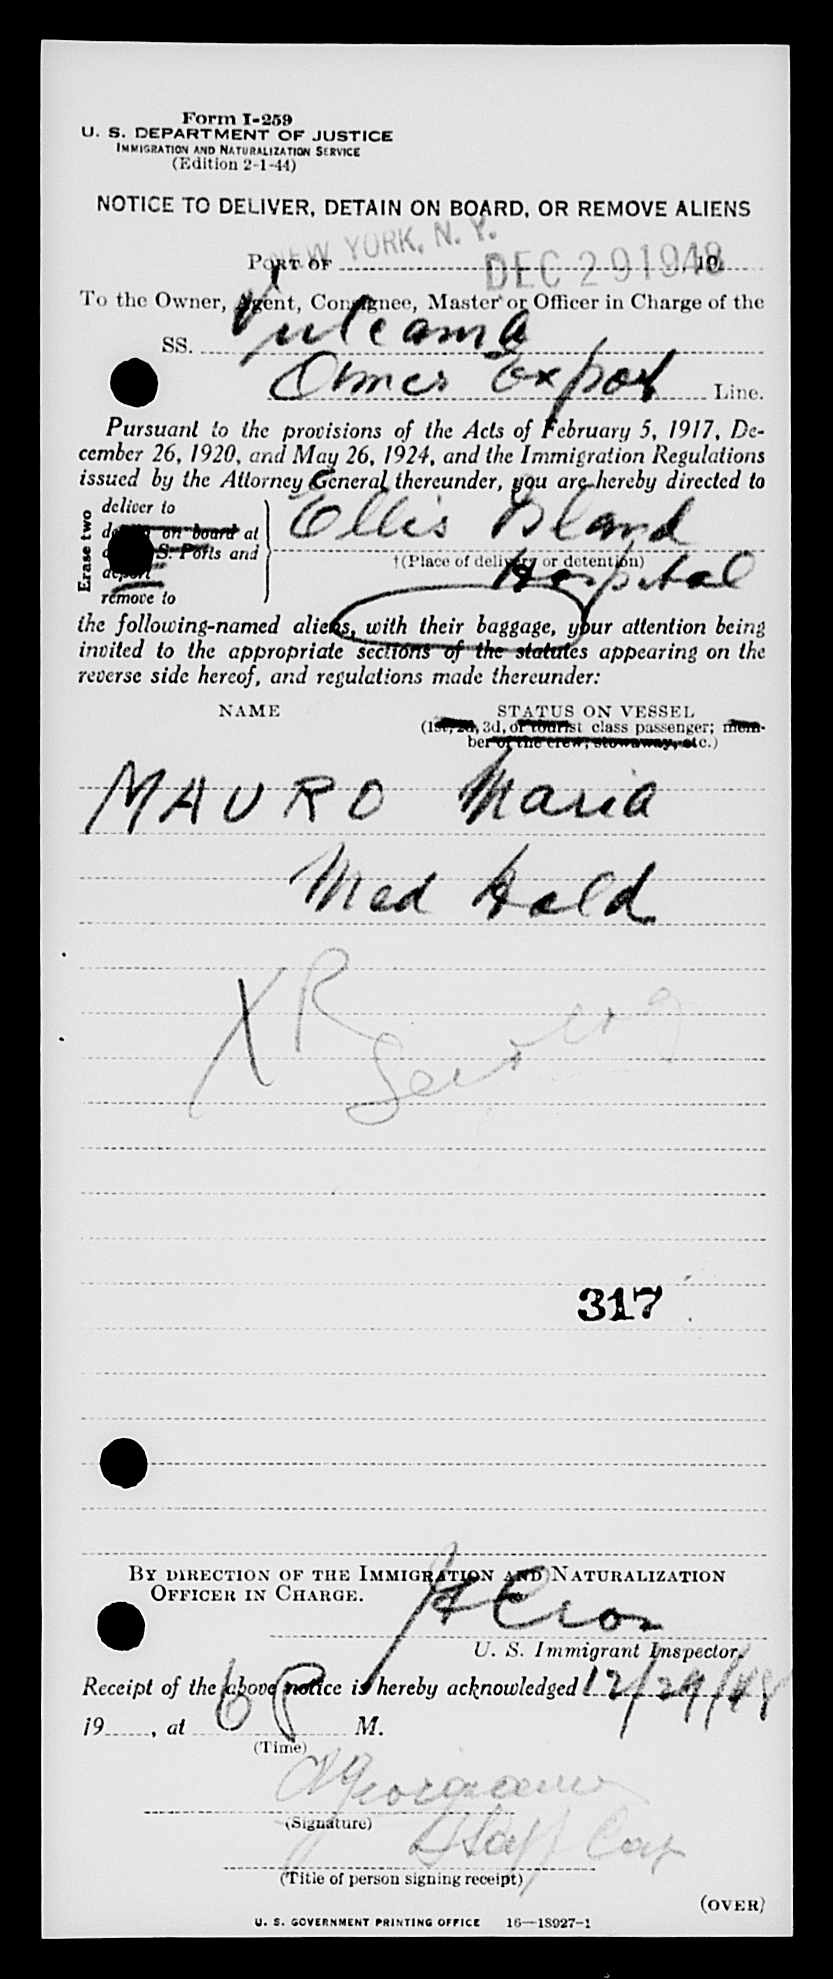 Form I-259
U. S. DEPARTMENT OF JUSTICE
IMMIGRATION AND NATURALIZATION SERVICE
(Edition 2-1-44)
NOTICE TO DELIVER, DETAIN ON BOARD, OR REMOVE ALIENS
NEW YORK, N. Y.
PORT OF DEC 29 1948, 19
To the Owner, Agent, Consignee, Master or Officer in Charge of the
SS. Vulcania
Amer Export Line.
Pursuant to the provisions of the Acts of February 5, 1917, De-
cember 26, 1920, and May 26, 1924, and the Immigration Regulations
issued by the Attorney General thereunder, you are hereby directed to
Erase two
deliver to
detain on board at Ellis Island
U. S. Ports and
†(Place of delivery or detention)
deport Hospital
remove to
the following-named aliens, with their baggage, your attention being
invited to the appropriate sections of the statutes appearing on the
reverse side hereof, and regulations made thereunder:
NAME STATUS ON VESSEL
(1st, 2d, 3d, or tourist class passenger; mem-
ber of the crew, stowaway, etc.)
MAURO Maria
Med Hold
XR
317
BY DIRECTION OF THE IMMIGRATION AND NATURALIZATION
OFFICER IN CHARGE.
U. S. Immigrant Inspector.
Receipt of the above notice is hereby acknowledged 12/29/48
19, at 6 P M.
(Time)
(Signature)
Staff Cap
(Title of person signing receipt)
(OVER)
U. S. GOVERNMENT PRINTING OFFICE 16—18927-1